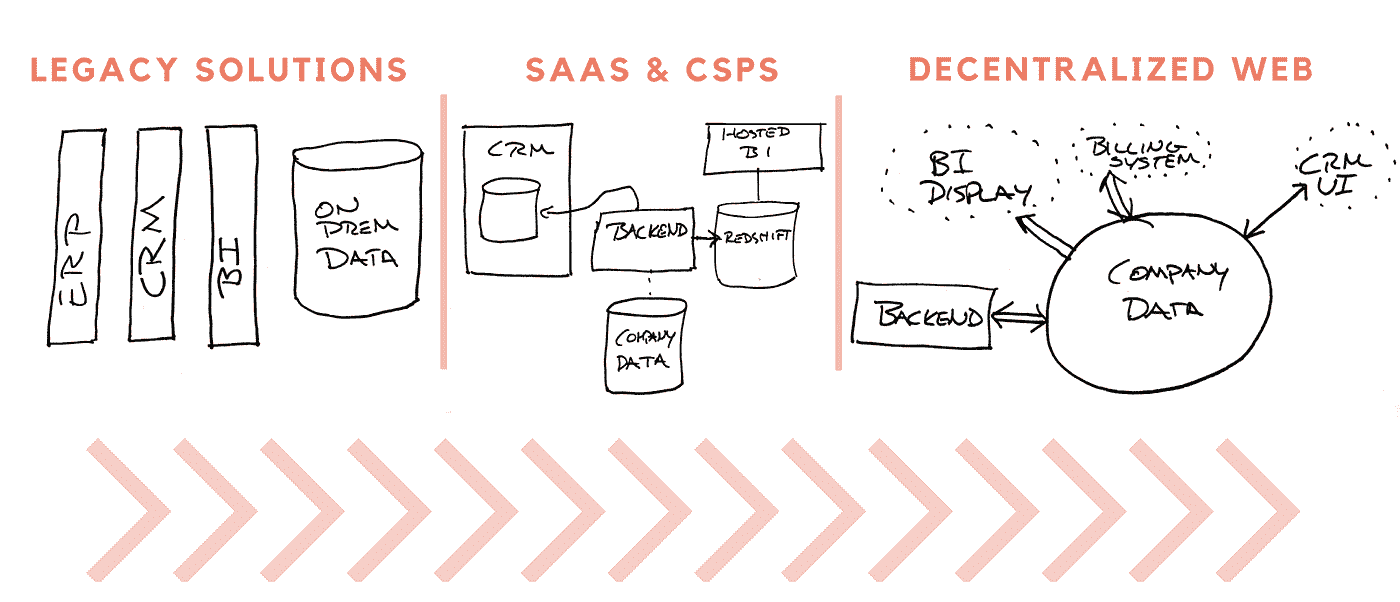 LEGACY SOLUTIONS
ERP
CRM
BI
ON
PREM
DATA
SAAS & CSPS
CRM
HOSTED
BI
BACKEND
REDSHIFT
COMPANY
DATA
DECENTRALIZED WEB
BI
DISPLAY
BILLING
SYSTEM
CRM
UI
COMPANY
DATA
BACKEND